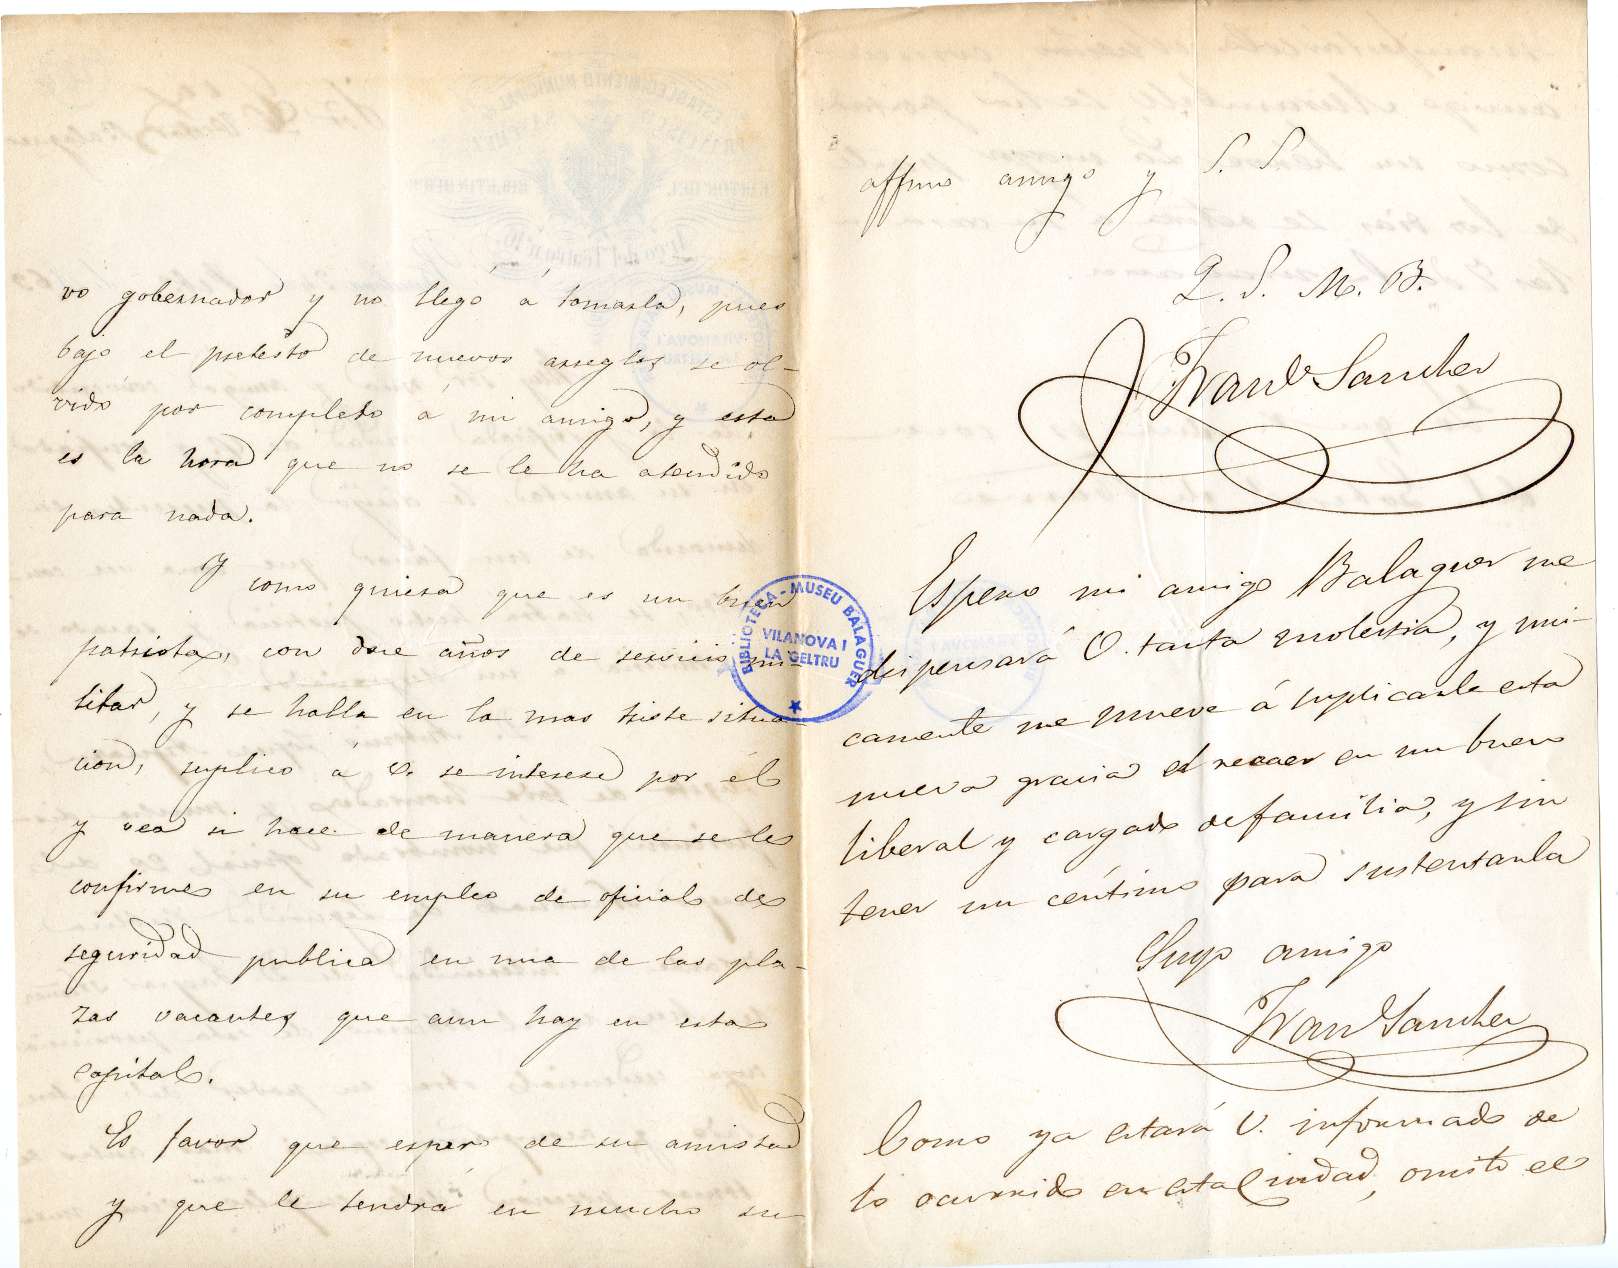 vo gobernador y no llegó á tomarla, pues
bajo el pretesto de nuevos arreglos se ol-
vidó por completo á mi amigo, y esta
es la hora que no se le ha atendido
para nada.
Y como quiera que es un buen
patriota, con doce años de servicio mi-
litar, y se halla en la mas triste situa-
cion, suplico á V. se interese por él
y vea si hace de manera que se le
confirme en su empleo de oficial de
seguridad publica en una de las pla-
zas vacantes que aun hay en esta
capital.
Es favor que espero de su amistad
y que le tendrá en mucho su
affmo amigo y S. S.
Q. S. M. B.
Franco Sanchez
Espero mi amigo Balaguer me
dispensará V. tanta molestia, y uni-
camente me mueve á suplicarle esta
nueva gracia el recaer en un buen
liberal y cargado de familia, y sin
tener un céntimo para sustentarla
Suyo amigo
Fran Sanchez
Como ya estará V. informado de
lo ocurrido en esta Ciudad, omito el
BIBLIOTECA - MUSEU BALAGUER
VILANOVA I
LA GELTRU